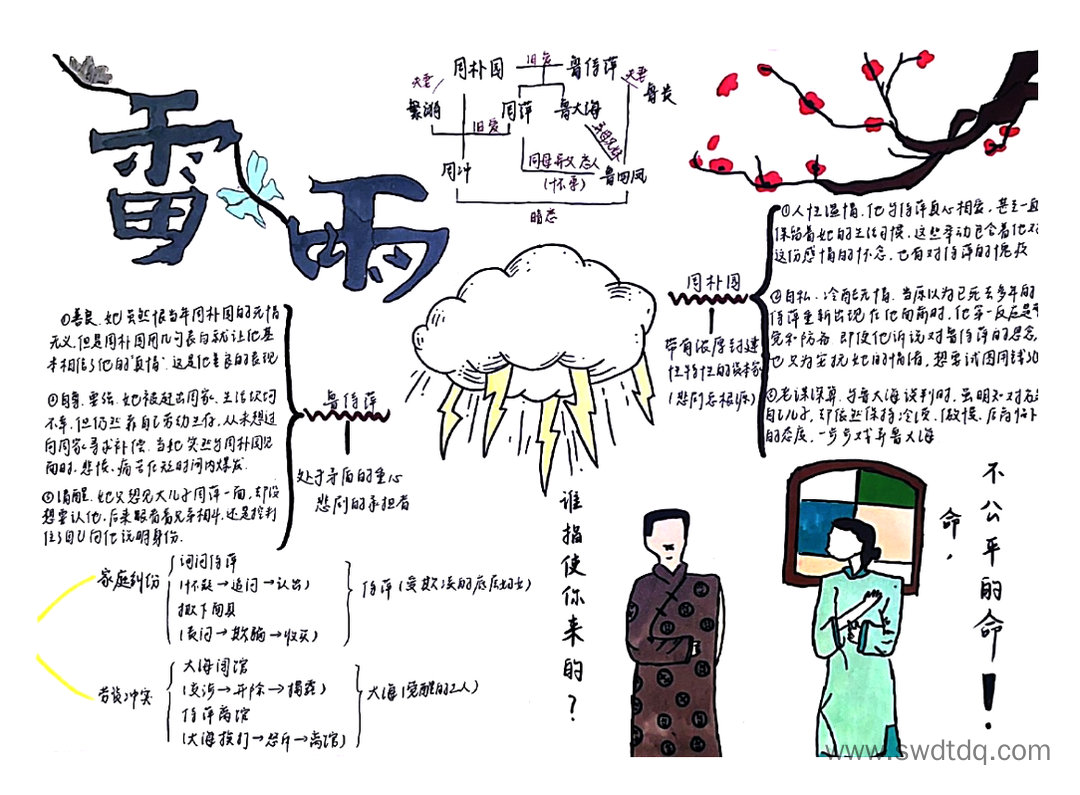 雷雨
周朴园
旧爱
鲁侍萍
夫妻
夫妻
鲁贵
繁漪
周萍
鲁大海
旧爱
周冲
同母异父 恋人
(怀孕)
鲁四凤
暗恋
①善良.她虽然恨当年周朴园的无情
无义,但是周朴园用几句表白就让他基
本相信了他的"真情".这是他善良的表现
②自尊.坚强.她被赶出周家,生活饮
不幸,但仍然靠自己劳动生存,从未想过
向周家寻求补偿.当她突然与周朴园见
面时,悲愤、痛苦在短时间内爆发.
③清醒.她只想见大儿子周萍一面,却没
想要认他,后来眼看着兄弟相斗,还是控制
住了自己向他说明身份.
鲁侍萍
处于矛盾的重心
悲剧的承担者
周朴园
带有浓厚封建
性特性的资本家
(悲剧总根源)
①人性温情.他与侍萍真心相爱,甚至一直
保留着她的生活习惯.这些举动包含着他对
这份感情的怀念,也有对侍萍的愧疚
②自私、冷酷无情.当原以为已死去多年的
侍萍重新出现在他面前时,他第一反应是
觉和防备.即使他诉说对鲁侍萍的思念,
也只为安抚她的情绪,想要试图用钱
③老谋深算.与鲁大海谈判时,虽明知对方
自己儿子,却依然保持冷漠、傲慢、
的态度,一步步戏弄鲁大海
家庭纠纷
询问侍萍
(怀疑→追问→认出)
撕下面具
(责问→欺骗→收买)
侍萍(受欺凌的底层妇女)
劳资冲突
大海闯馆
(交涉→开除→揭露)
侍萍离馆
(大海挨打→怒斥→离馆)
大海(觉醒的工人)
谁指使你来的?
不公平的命!
命,
www.swdtdq.com